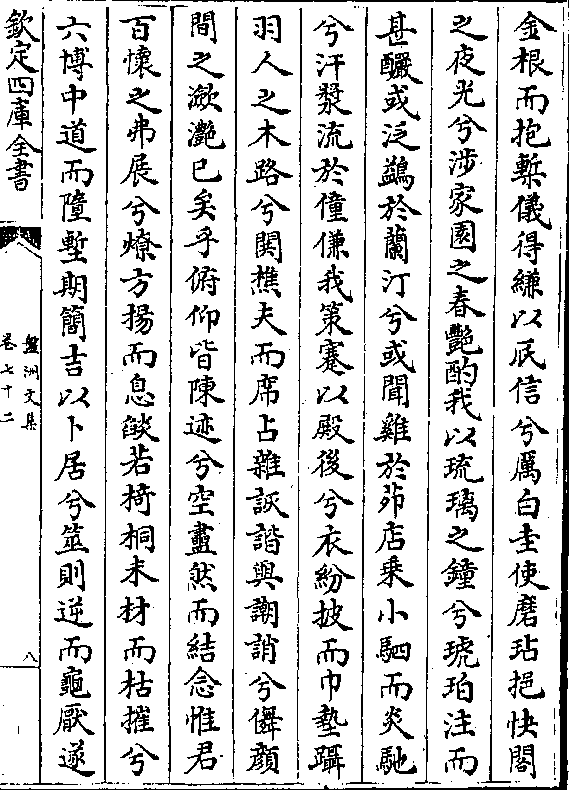 金根而抱槧儀得縑以厎信兮厲白圭使磨玷挹快閣
之夜光兮涉家園之春艷酌我以琉璃之鐘兮琥珀注而
甚釅或泛鷁於蘭汀兮或聞雞於茆店乗小駟而炎馳
兮汗漿流於僮傔我策蹇以殿後兮衣紛披而巾墊躡
羽人之木路兮閧樵夫而席占雜詼諧與謿誚兮儛顔
間之瀲灩已矣乎俯仰皆陳迹兮空盡然而結念惟君
百懷之弗展兮燎方揚而息燄若椅桐未材而枯摧兮
六博中道而墮塹期簡吉以卜居兮筮則逆而龜厭遂
欽定四庫全書
盤洲文集
卷七十二
八